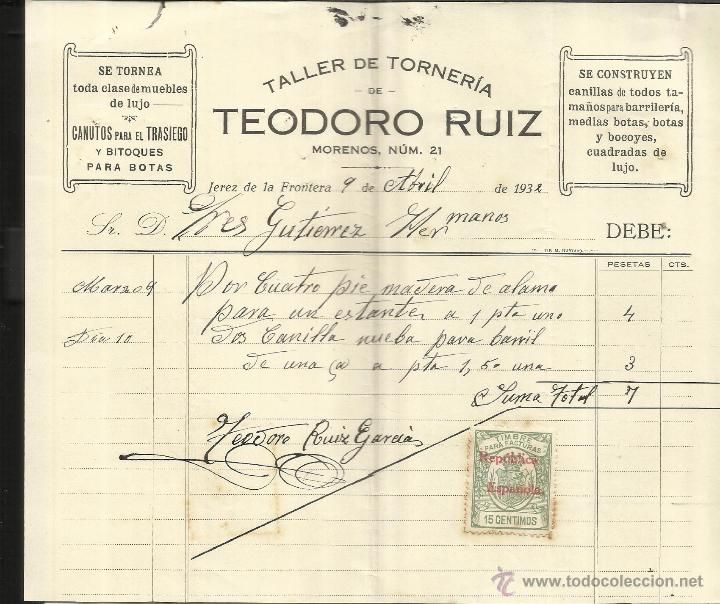 SE TORNEA
toda clase de muebles
de lujo
CANUTOS PARA EL TRASIEGO
Y BITOQUES
PARA BOTAS
TALLER DE TORNERÍA
DE
TEODORO RUIZ
MORENOS, NÚM. 21
SE CONSTRUYEN
canillas de todos ta-
maños para barrilería,
medias botas, botas
y bocoyes,
cuadradas de
lujo.
Jerez de la Frontera 9 de Abril de 1932
Sr. D. Sres Gutiérrez Hermanos DEBE:
PESETAS CTS.
Marzo 9 Por Cuatro pie madera de alamo
para un estanter a 1 pta uno 4
Dia 10 dos Canilla nueba para barril
de una a pta 1,50 una 3
Suma Total 7
Teodoro Ruiz Garcia
TIMBRE
PARA FACTURAS
República
Española
15 CENTIMOS
www.todocoleccion.net